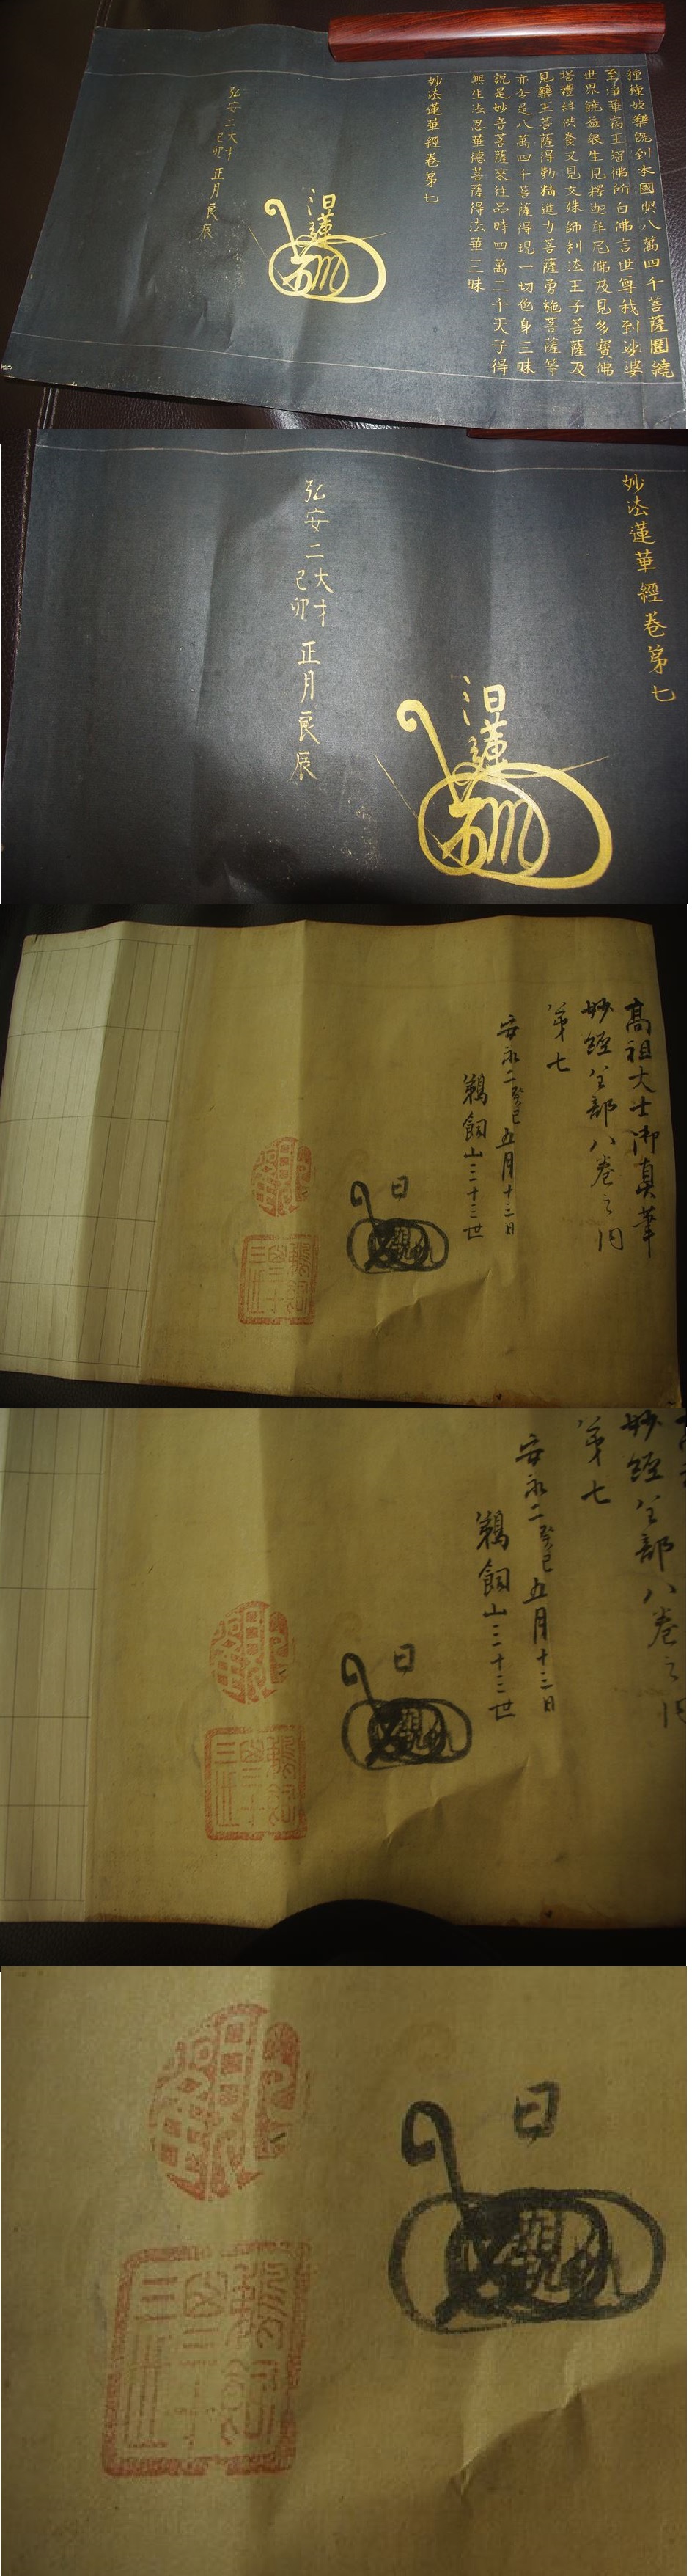 種種妓樂既到本國與八萬四千菩薩圍繞
至淨華宿王智佛所白佛言世尊我到娑婆
世界饒益衆生見釋迦牟尼佛及見多寶佛
塔禮拜供養又見文殊師利法王子菩薩及
見藥王菩薩得勤精進力菩薩勇施菩薩等
亦令是八萬四千菩薩得現一切色身三昧
說是妙音菩薩來往品時四萬二千天子得
無生法忍華德菩薩得法華三昧
妙法蓮華經卷第七
日蓮
弘安二大才己卯正月良辰
妙法蓮華經卷第七
日蓮
弘安二大才己卯正月良辰
高祖大士御真筆
妙經全部八卷之内
第七
安永二癸巳五月十三日
鵜飼山三十三世
日
妙經全部八卷之内
第七
安永二癸巳五月十三日
鵜飼山三十三世
日
日